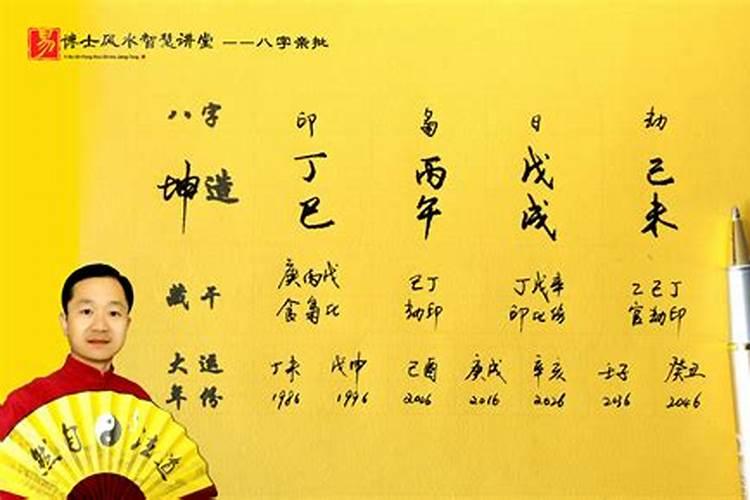 易博士风水智慧讲堂 ——八字亲批
八字 印 枭 日 劫
坤造 丁巳 丙午 戊戌 己未
藏干 庚丙戊 己丁 丁戊辛 乙己丁
食枭比 劫印 印比伤 官劫印
大运 丁未 戊申 己酉 庚戌 辛亥 壬子 癸丑
年份 1986 1996 2006 2016 2026 2036 2046
然自法道